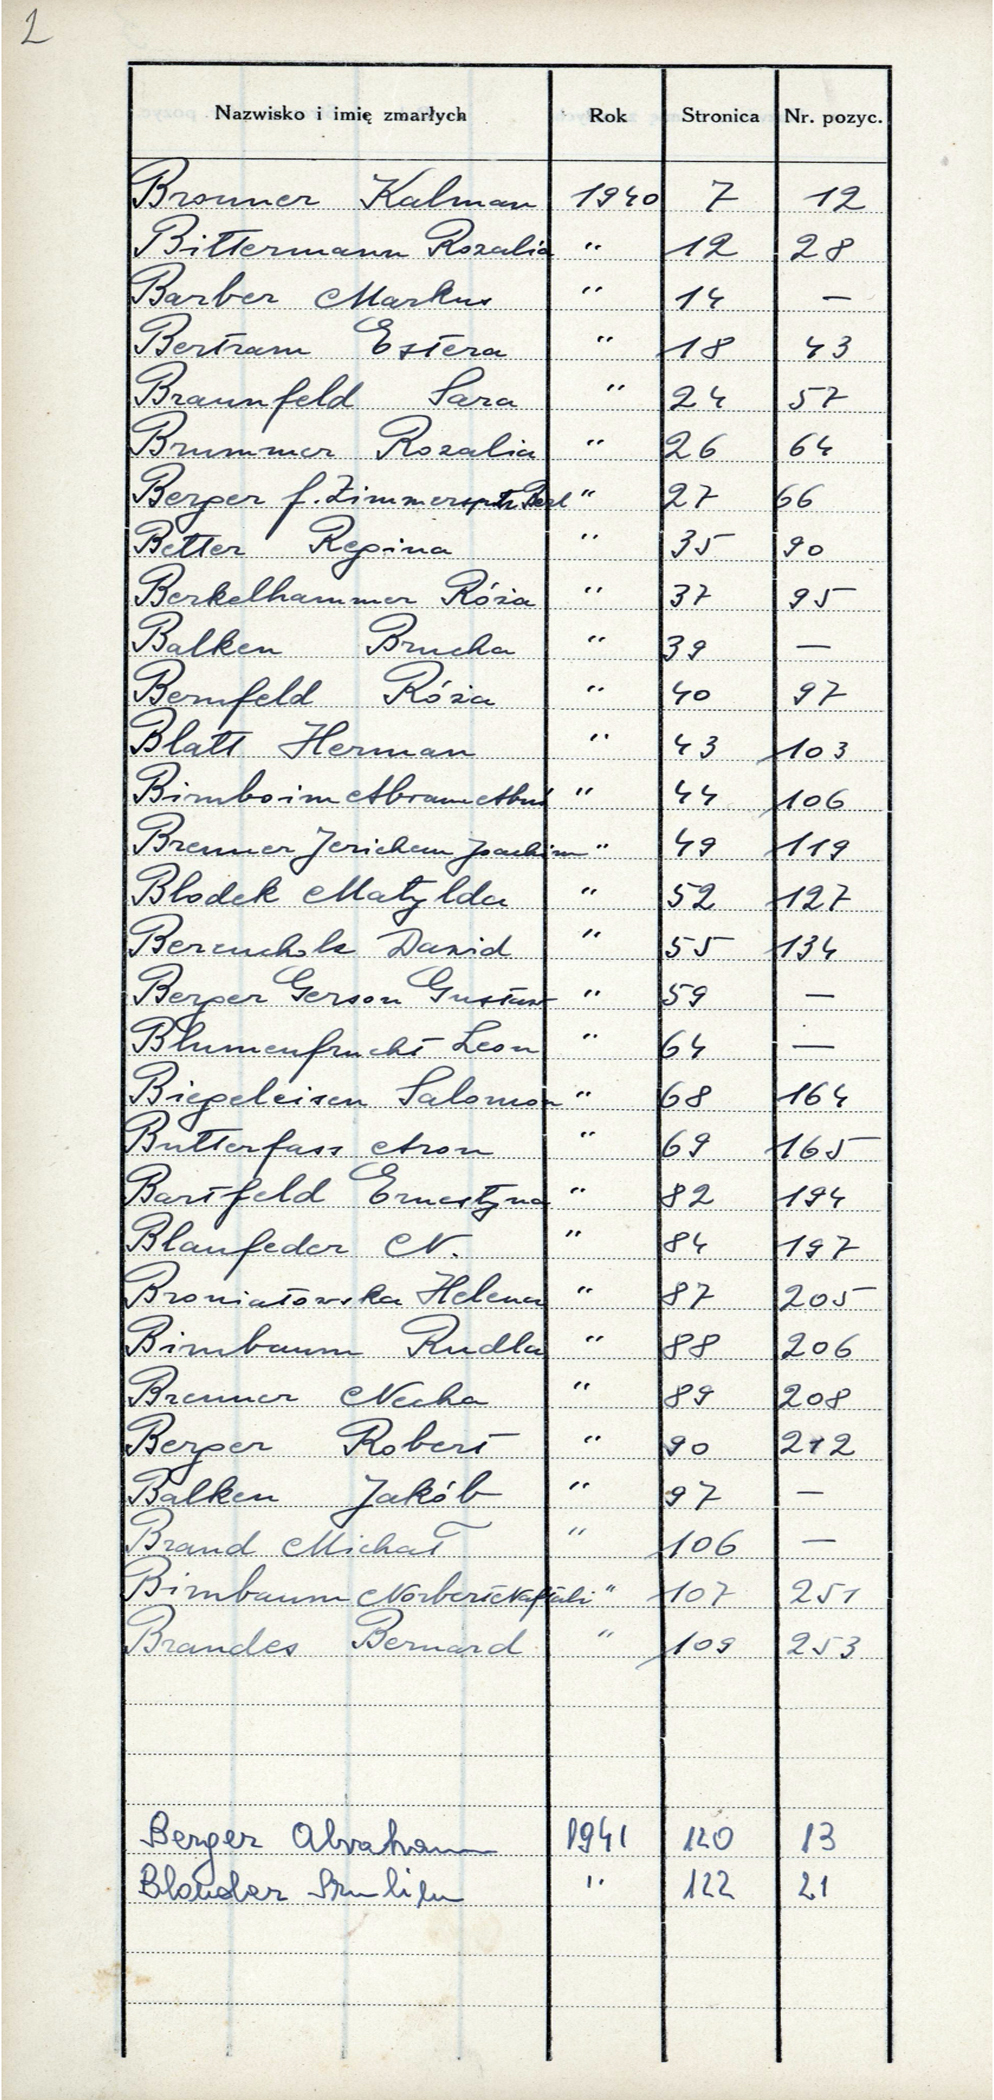 2
Nazwisko i imię zmarłych Rok Stronica Nr. pozyc.
Bronner Kalman 1940 7 12
Bittermann Rozalia " 12 28
Barber Markus " 14 —
Bertram Estera " 18 43
Braunfeld Sara " 24 57
Brummer Rozalia " 26 64
Berger f. Zimmerspitz Berl " 27 66
Better Regina " 35 90
Berkelhammer Róża " 37 95
Balken Brucha " 39 —
Bernfeld Róża " 40 97
Blatt Herman " 43 103
Birnboim Abram " 44 106
Brenner Jerichem Joachim " 49 119
Blodek Matylda " 52 127
Dawid " 55 134
Berger Gerson Gustaw " 59 —
Blumenfrucht Leon " 64 —
Biegeleisen Salomon " 68 164
Butterfass Aron " 69 165
Bartfeld Ernestyna " 82 194
Blaufeder N. " 84 197
Broniatowska Helena " 87 205
Birnbaum Rudla " 88 206
Brenner Necha " 89 208
Berger Robert " 90 212
Balken Jakób " 97 —
Brand Michał " 106 —
Birnbaum Norbert Naftali " 107 251
Brandes Bernard " 109 253
Berger Abraham 1941 120 13
" 122 21